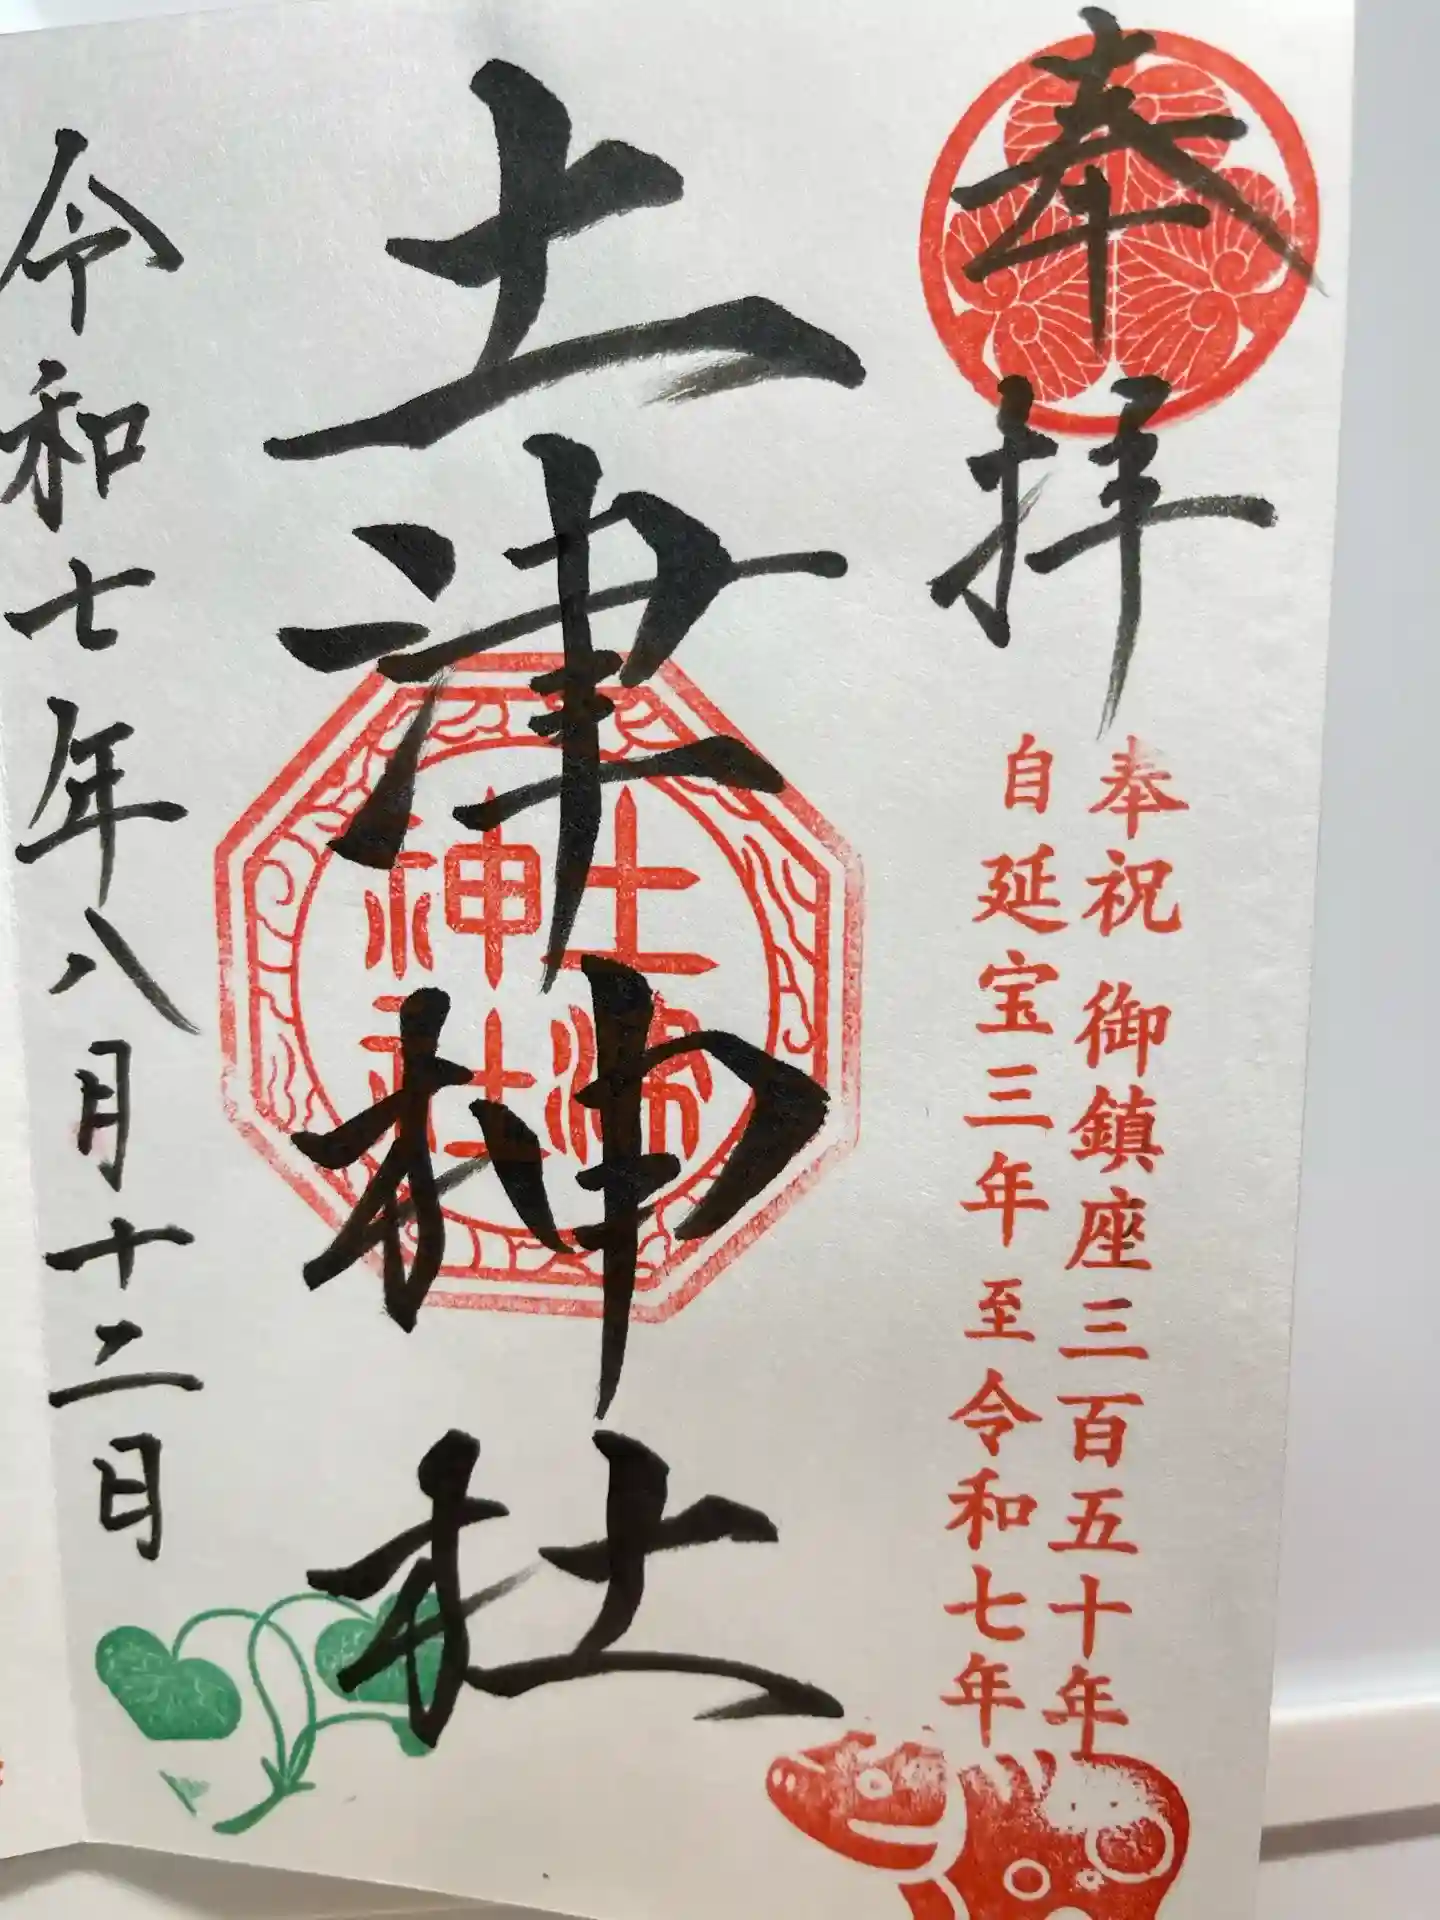 奉拝
奉祝 御鎮座三百五十年
自延宝三年 至令和七年
土津神社
土津
神社
令和七年八月十二日